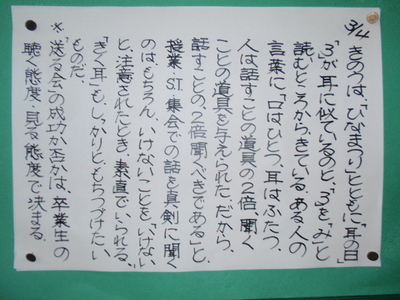 3/4
きのうは、「ひなまつり」とともに「耳の日」
「3」が耳に似ているのと、「3」を「み」と
読むところからきている。ある人の
言葉に「口はひとつ、耳はふたつ、
人は話すことの道具の2倍、聞く
ことの道具を与えられた。だから、
話すことの、2倍聞くべきである」と。
授業・S.T.集会での話を真剣に聞く
のは、もちろん、いけないことを「いけない
と、注意されたとき、素直でいられる、
「きく耳」も、しっかりと、もちつづけたい
ものだ。
※送る会の成功か否かは、卒業生の
聴く態度・見る態度で決まる。